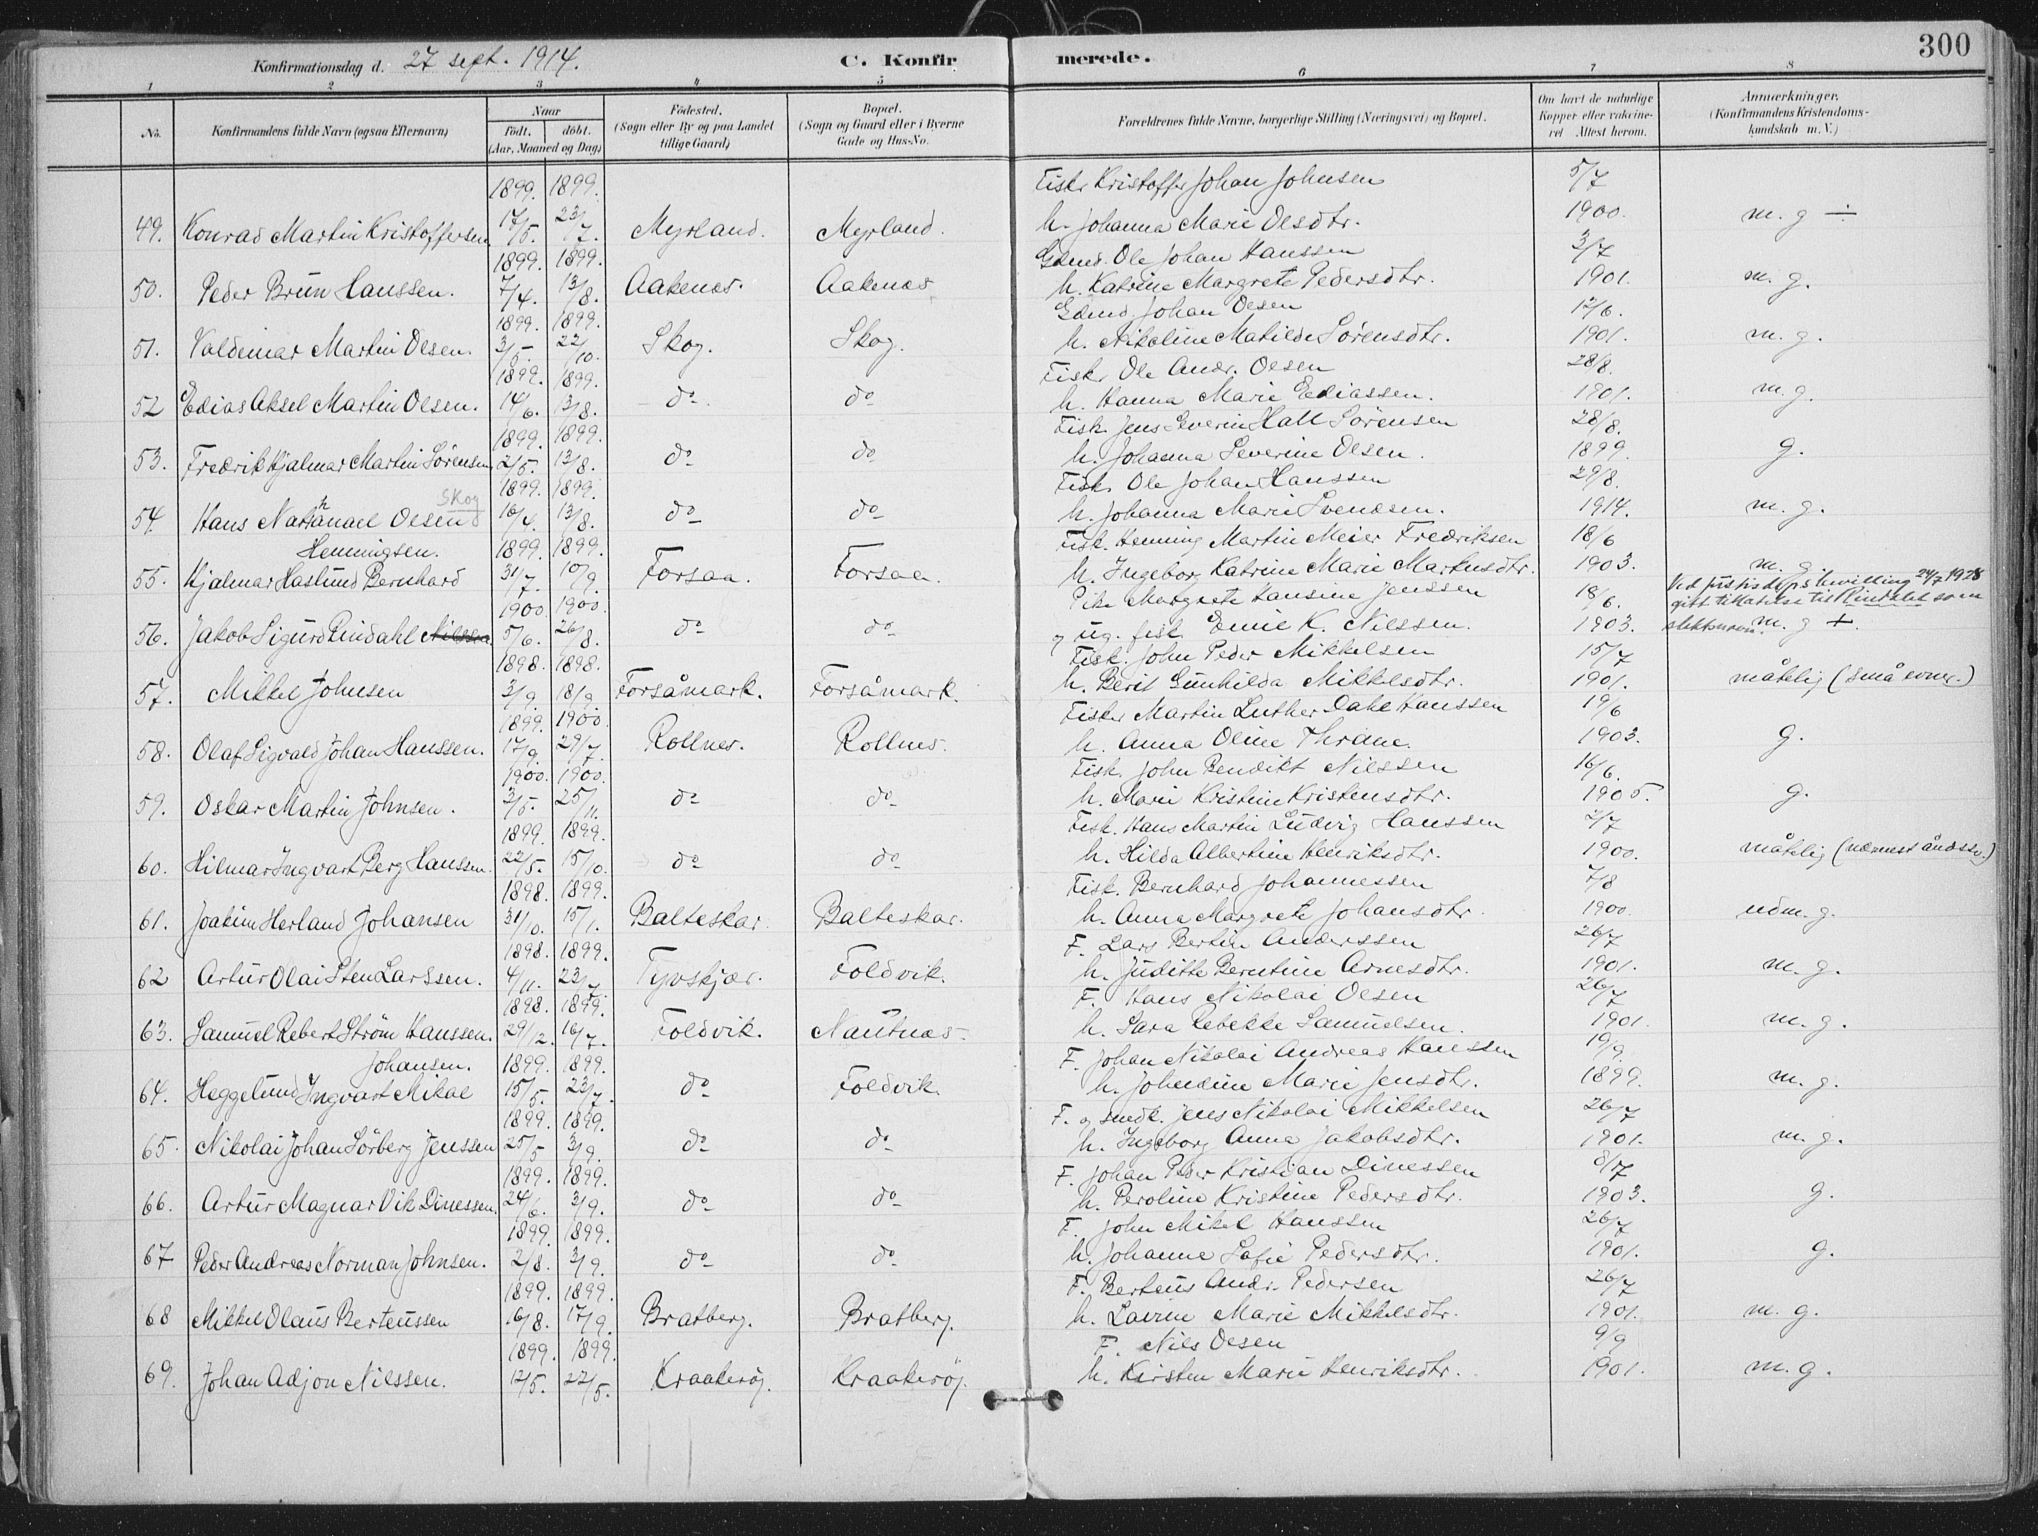 Konfirmationsdag d. 27 sept. 1914. C. Konfirmerede. 300
1 2 3 4 5 6 7 8
No. Konfirmandens fulde Navn (ogsaa Efternavn) Naar født. døbt. (Aar, Maaned og Dag) Fødested. (Sogn eller By og paa Landet tillige Gaard) Bopæl. (Sogn og Gaard eller i Byerne Gade og Hus-No. Forældrenes fulde Navne, borgerlige Stilling (Næringsvei) og Bopæl. Om havt de naturlige Kopper eller vaccineret. Attest herom. Anmærkninger. (Konfirmandens Kristendomskundskab m. V.)
1899. 1899. Fisker Kristoffer Johan Johnsen 5/7
49. Konrad Martin Kristoffersen 17/5. 23/7. Myrland. Myrland. h. Johanna Marie Olsdtr. 1900. m. g ÷
1899. 1899. Gdmd. Ole Johan Hanssen 3/7
50. Peder Brun Hanssen. 7/4. 13/8. Aakenes. Aakenes h. Katrine Margrete Pedersdtr. 1901. m. g.
1899. 1899. Gdmd. Johan Olsen 12/6.
51. Valdemar Martin Olsen. 3/5. 22/10. Skog. Skog. h. Nikoline Matilde Sørensdtr. 1901. m. g.
1899. 1899. Fisker Ole Andr. Olsen 28/8.
52 Edias Aksel Martin Olsen. 14/6. 13/8. do do h. Hanna Marie Ediassen. 1901. m. g.
1899. 1899. Fisk. Jens Severin Hall Sørensen 28/8.
53. Fredrik Hjalmar Martin Sørensen 2/5. 13/8. do do h. Johanna Severine Olsen. 1899. g.
Skog 1899. 1899. Fisk. Ole Johan Hanssen 29/8.
54. Hans Nathanael Olsen 16/4. 13/8. do do h. Johanna Marie Svendsen. 1914. m. g.
Henningsen. 1899. 1899. Fisk. Henning Martin Meier Fredriksen 18/6
55. Hjalmar Haslund Bernhard 31/7. 10/9. Forsaa. Forsaa. h. Ingeborg Katrine Marie Markusdtr. 1903. m. g.
1900. 1900. Pike Margrete Hansine Jenssen 18/6. Ved justisdeps bevilling 24/7 1928 gitt tillatelse til Rindahl som slektsnavn.
56. Jakob Sigurd Rindahl Nilssen. 5/6. 26/8. do do og ug. fisk. Emil K. Nilssen. 1903. m. g +.
1898. 1898. Fisk. John Peder Mikkelsen 15/7
57. Mikkel Johnsen 3/9. 18/9. Forsåmark. Forsåmark. h. Berit Gunhilda Mikkelsdtr. 1901. måtelig (små evner.)
1899. 1900. Fisker Martin Luther Dahl Hanssen 19/6
58. Olaf Sigvald Johan Hanssen. 17/9. 29/7. Rollnes. Rollnes. h. Anna Oline Thrane. 1903. g.
1900. 1900. Fisk. John Bendikt Nilssen 16/6.
59. Oskar Martin Johnsen. 3/5. 25/11. do do h. Marie Kristine Kristensdtr. 1905. g.
1899. 1899. Fisk. Hans Martin Ludvig Hanssen 2/7
60. Hilmar Ingvart Berg Hanssen. 22/5. 15/10. do do h. Hilda Albertine Henriksdtr. 1900. måtelig (nærmest åndssv.)
1898. 1899. Fisk. Bernhard Johannessen 7/8
61. Joakim Herland Johansen 31/10. 15/1. Balteskar. Balteskar. h. Anna Margrete Johansdtr. 1900. udm. g.
1898. 1899. F. Lars Bertin Anderssen 26/7
62 Artur Olai Sten Larssen. 4/11. 23/7. Tyvskjær. Foldvik. h. Juditte Berntine Arnesdtr. 1901. m. g.
1898. 1899. F. Hans Nikolai Olsen 26/7
63. Samuel Rebert Strøm Hanssen. 29/12. 16/7. Foldvik. Nautnæs h. Sara Rebekke Samuelsen. 1901. m. g.
Johansen. 1899. 1899. F. Johan Nikolai Andreas Hanssen 19/9.
64. Heggelund Ingvart Mikal 15/5. 23/7. do Foldvik. h. Johndine Marie Jensdtr. 1899. m. g.
1899. 1899. F. og smedk. Jens Nikolai Mikkelsen 26/7
65. Nikolai Johan Sørberg Jenssen 25/5 3/9. do do h. Ingeborg Anna Jakobsdtr. 1901. m. g.
1899. 1899. F. Johan Peder Kristian Dinessen 8/7
66. Artur Magnar Vik Dinessen. 24/6. 3/9. do do h. Peroline Kristine Pedersdtr. 1903. g.
1899. 1899. F. John Mikel Hanssen 26/7
67 Peder Andreas Norman Johnsen. 2/8. 3/9. do do h. Johanne Sofie Pedersdtr. 1901. g.
1899. 1899. F. Berteus Andr. Pedersen 26/7
68 Mikkel Olaus Berteussen 16/8. 17/9. Bratberg. Bratberg. h. Lavine Marie Mikkelsdtr. 1901. m. g.
1899. 1899. F. Nils Olsen 9/9
69. Johan Adjon Nilssen. 12/5. 22/5. Kraakrøj. Kraakerøj. h. Kirsten Marie Henriksdtr. 1901. m. g.